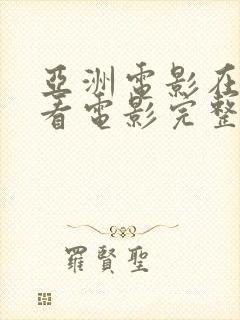 亞洲電影在
看電影完整
羅賢聖